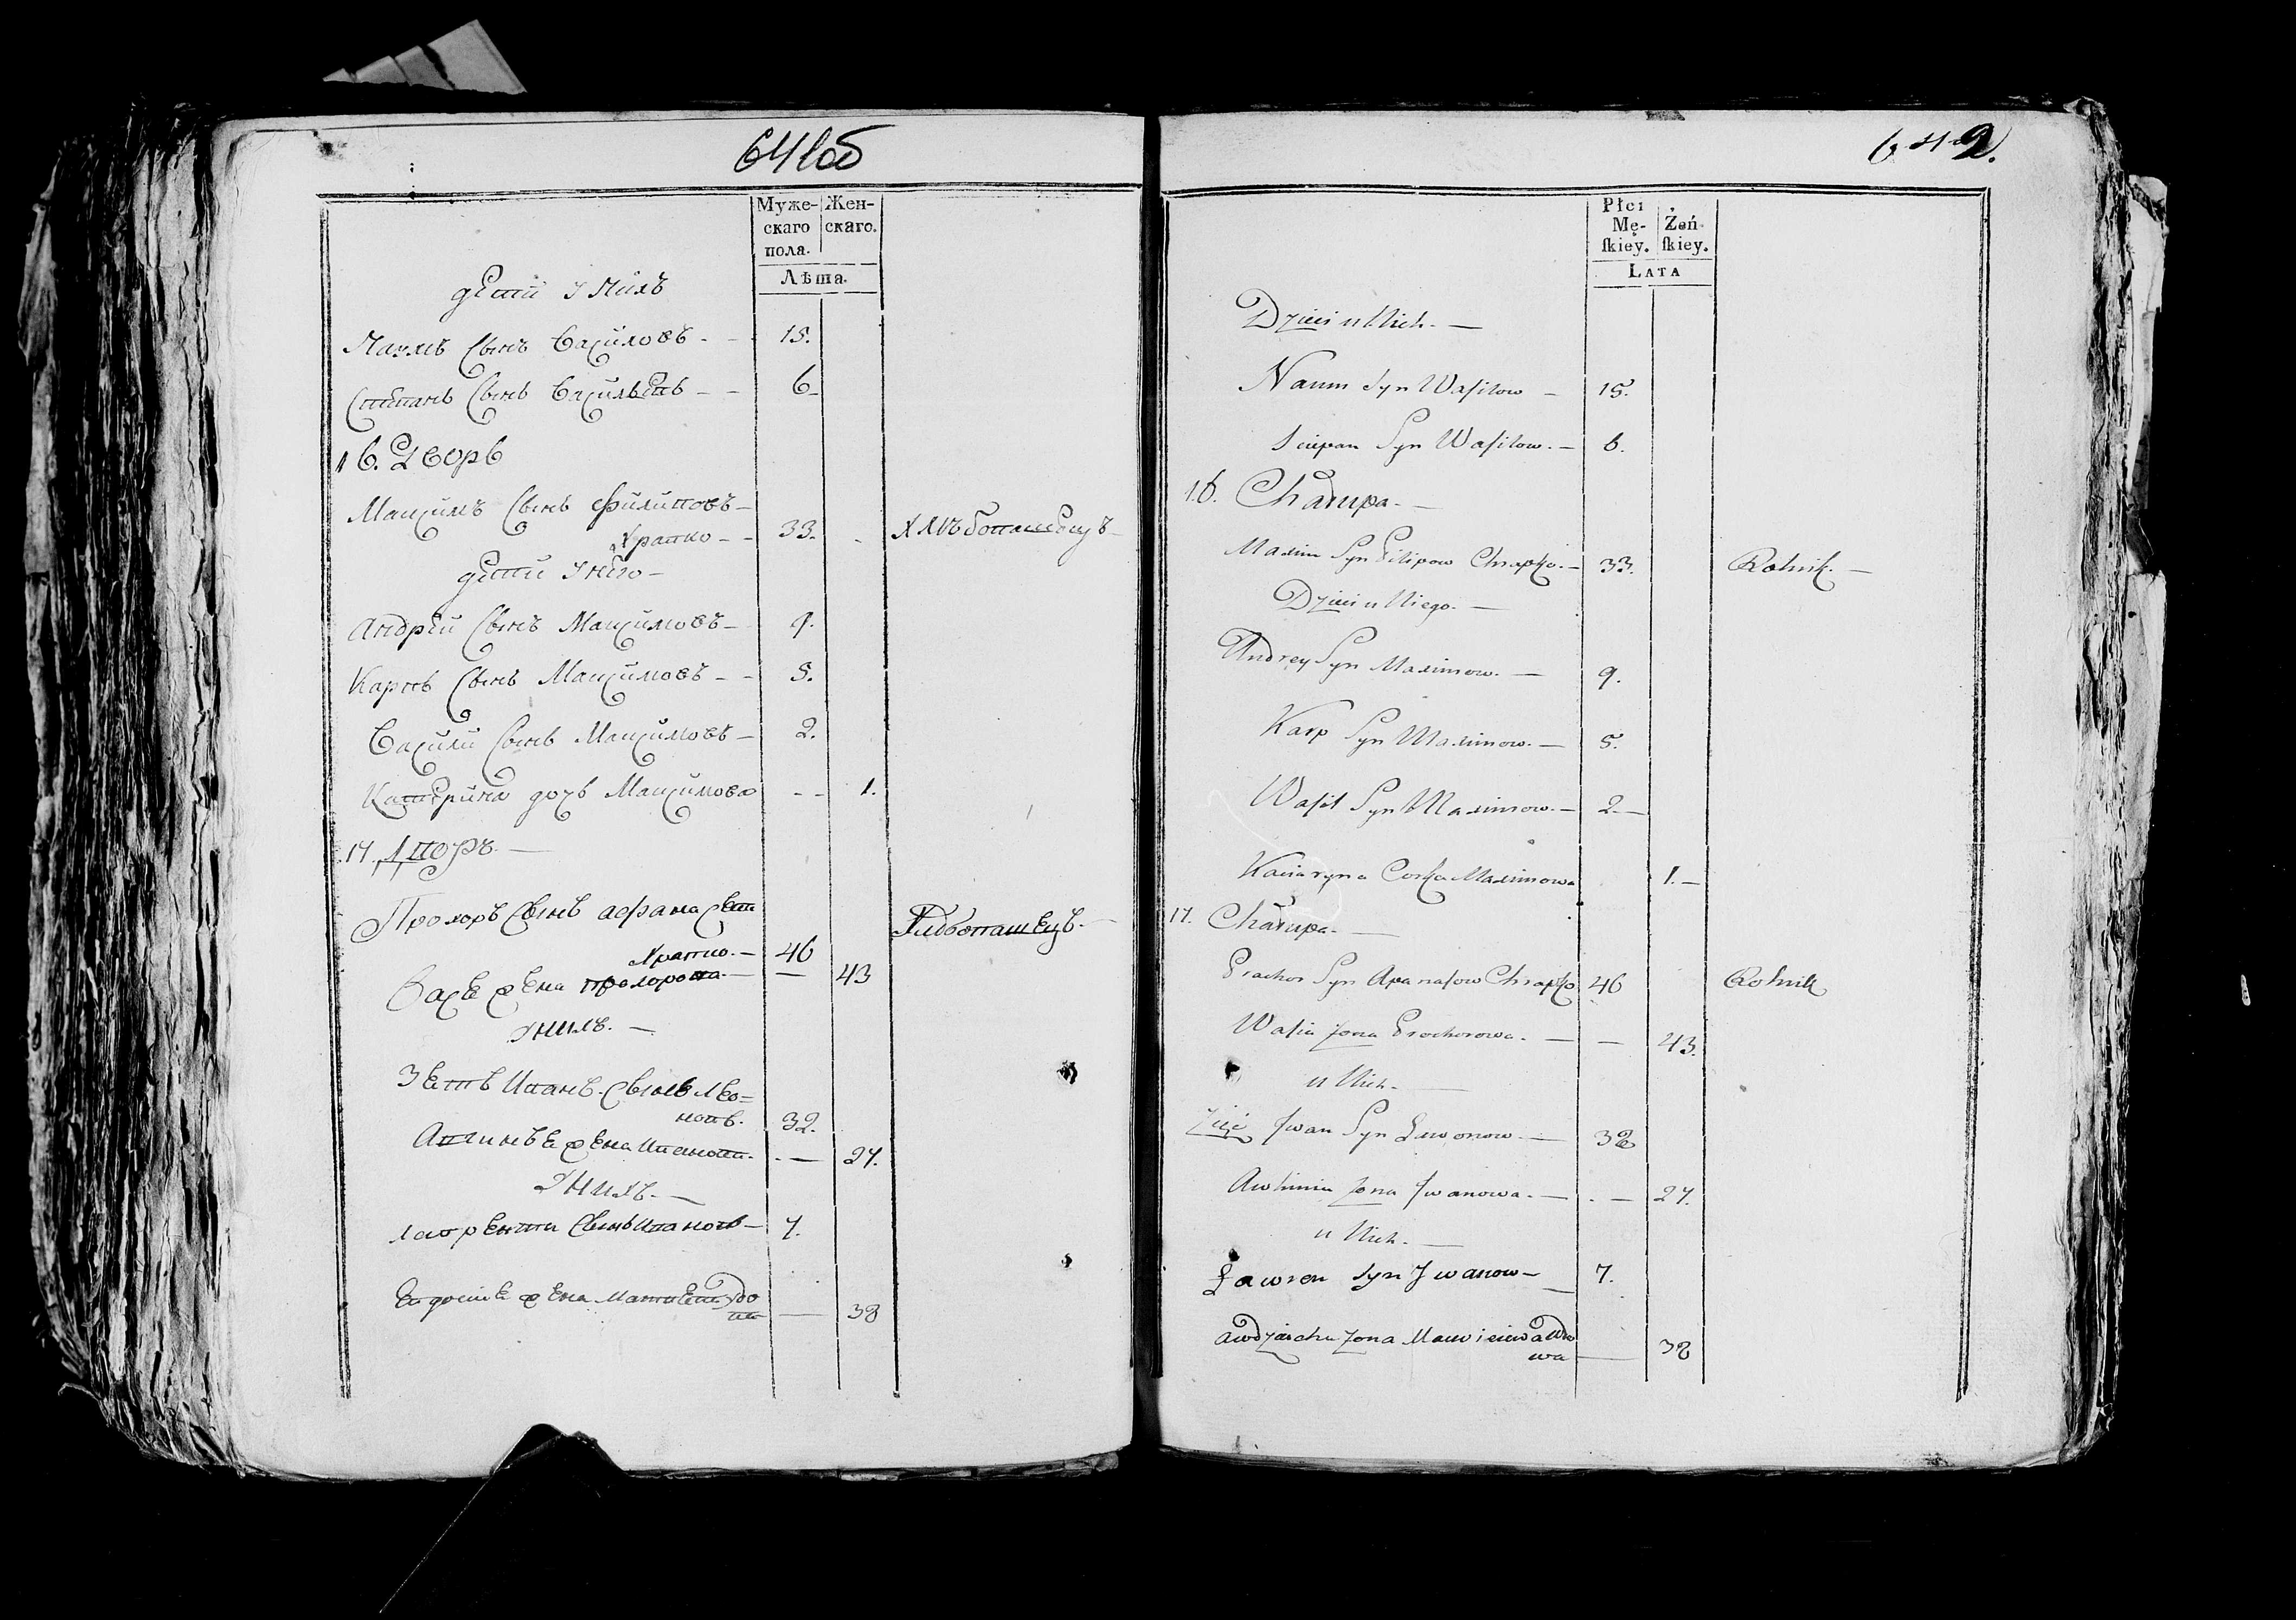 641об
Муже- Жен-
скаго скаго.
пола.
Лѣта.
дети у нихъ
Наумъ сынъ Василовъ - 15.
Степанъ сынъ Васильевъ - - 6
16. Дворъ
Максимъ сынъ Филиповъ -
Храпко - - 33. -
дети у него -
Андрей сынъ Максимовъ - 9.
Карпъ сынъ Максимовъ - - 5.
Васили сынъ Максимовъ - 2.
Катерина дочь Максимова - - 1.
17. Дворъ. -
Прохоръ сынъ Афанасев
Храпко. - 46
Васе жена Прохорова. - - 43
У нихъ. -
Зеть Иванъ сынъ Лео=
новъ. 32.
жена Иванова. - - 27.
У нихъ. -
Лавренти сынъ Ивановъ - 7.
жена Матвеева вдо
ва - 38
642.
Płci
Mę- Żeń-
ſkiey. ſkiey.
LATA
Dzieci u Nich. -
Naum Syn Wasilow - 15.
Sciepan Syn Wasilow. - 6.
16. Chałupa. -
Maxim Syn Filipow Chrapko. - 33. Rolnik. -
Dzieci u Niego. -
Andrey Syn Maximow. - 9.
Karp Syn Maximow. - 5.
Wasil Syn Maximow. - 2. -
Kaciaryna Corka Maximowa 1. -
17. Chałupa. -
Prachor Syn Apanasow Chrapko 46 Rolnik
Wasia Zona Prochorowa. - - 43.
u Nich. -
Zięć Jwan Syn Lawonow - 32
Awhinia Zona Jwanowa. - . - 27.
u Nich. -
Ławren Syn Jwanow - 7.
Awdziucha Zona Maciejewa Wdo
wa - 38